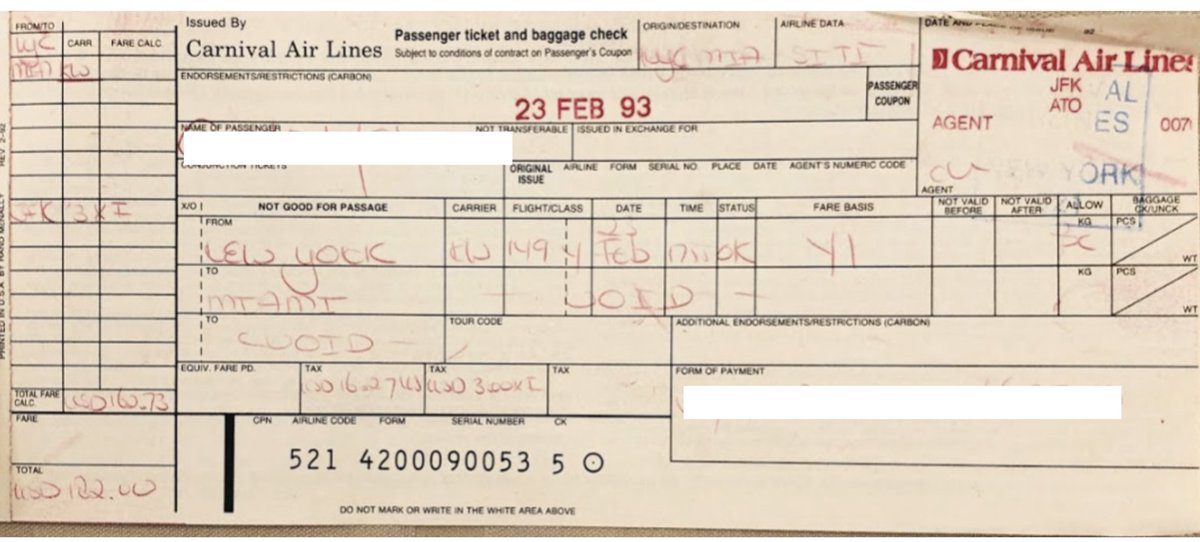 FROM/TO
NYC CARR. FARE CALC.
MIA KW
Issued By
Carnival Air Lines
Passenger ticket and baggage check
Subject to conditions of contract on Passenger's Coupon
ORIGIN/DESTINATION
NYC MIA
AIRLINE DATA
SITI
DATE AND PLACE OF ISSUE
Carnival Air Lines
JFK AL
ATO
AGENT ES 007
YORK
AGENT
ENDORSEMENTS/RESTRICTIONS (CARBON)
23 FEB 93
PASSENGER
COUPON
NAME OF PASSENGER
NOT TRANSFERABLE
ISSUED IN EXCHANGE FOR
CONJUNCTION TICKETS
ORIGINAL ISSUE AIRLINE FORM SERIAL NO. PLACE DATE AGENT'S NUMERIC CODE
JFK 3 XI
X/O NOT GOOD FOR PASSAGE CARRIER FLIGHT/CLASS DATE TIME STATUS FARE BASIS NOT VALID BEFORE NOT VALID AFTER ALLOW BAGGAGE CK/UNCK
FROM KG PCS
NEW YORK KW 149 Y 23 FEB OK Y1
WT
TO KG PCS
MIAMI - VOID -
WT
TO TOUR CODE ADDITIONAL ENDORSEMENTS/RESTRICTIONS (CARBON)
VOID -
EQUIV. FARE PD. TAX TAX TAX FORM OF PAYMENT
USD 16.27 US USD 3.00 XI
TOTAL FARE CALC. USD 160.73
FARE
CPN AIRLINE CODE FORM SERIAL NUMBER CK
521 4200090053 5
TOTAL
DO NOT MARK OR WRITE IN THE WHITE AREA ABOVE
REV. 2-92
PRINTED IN U.S.A. BY RAND MCNALLY